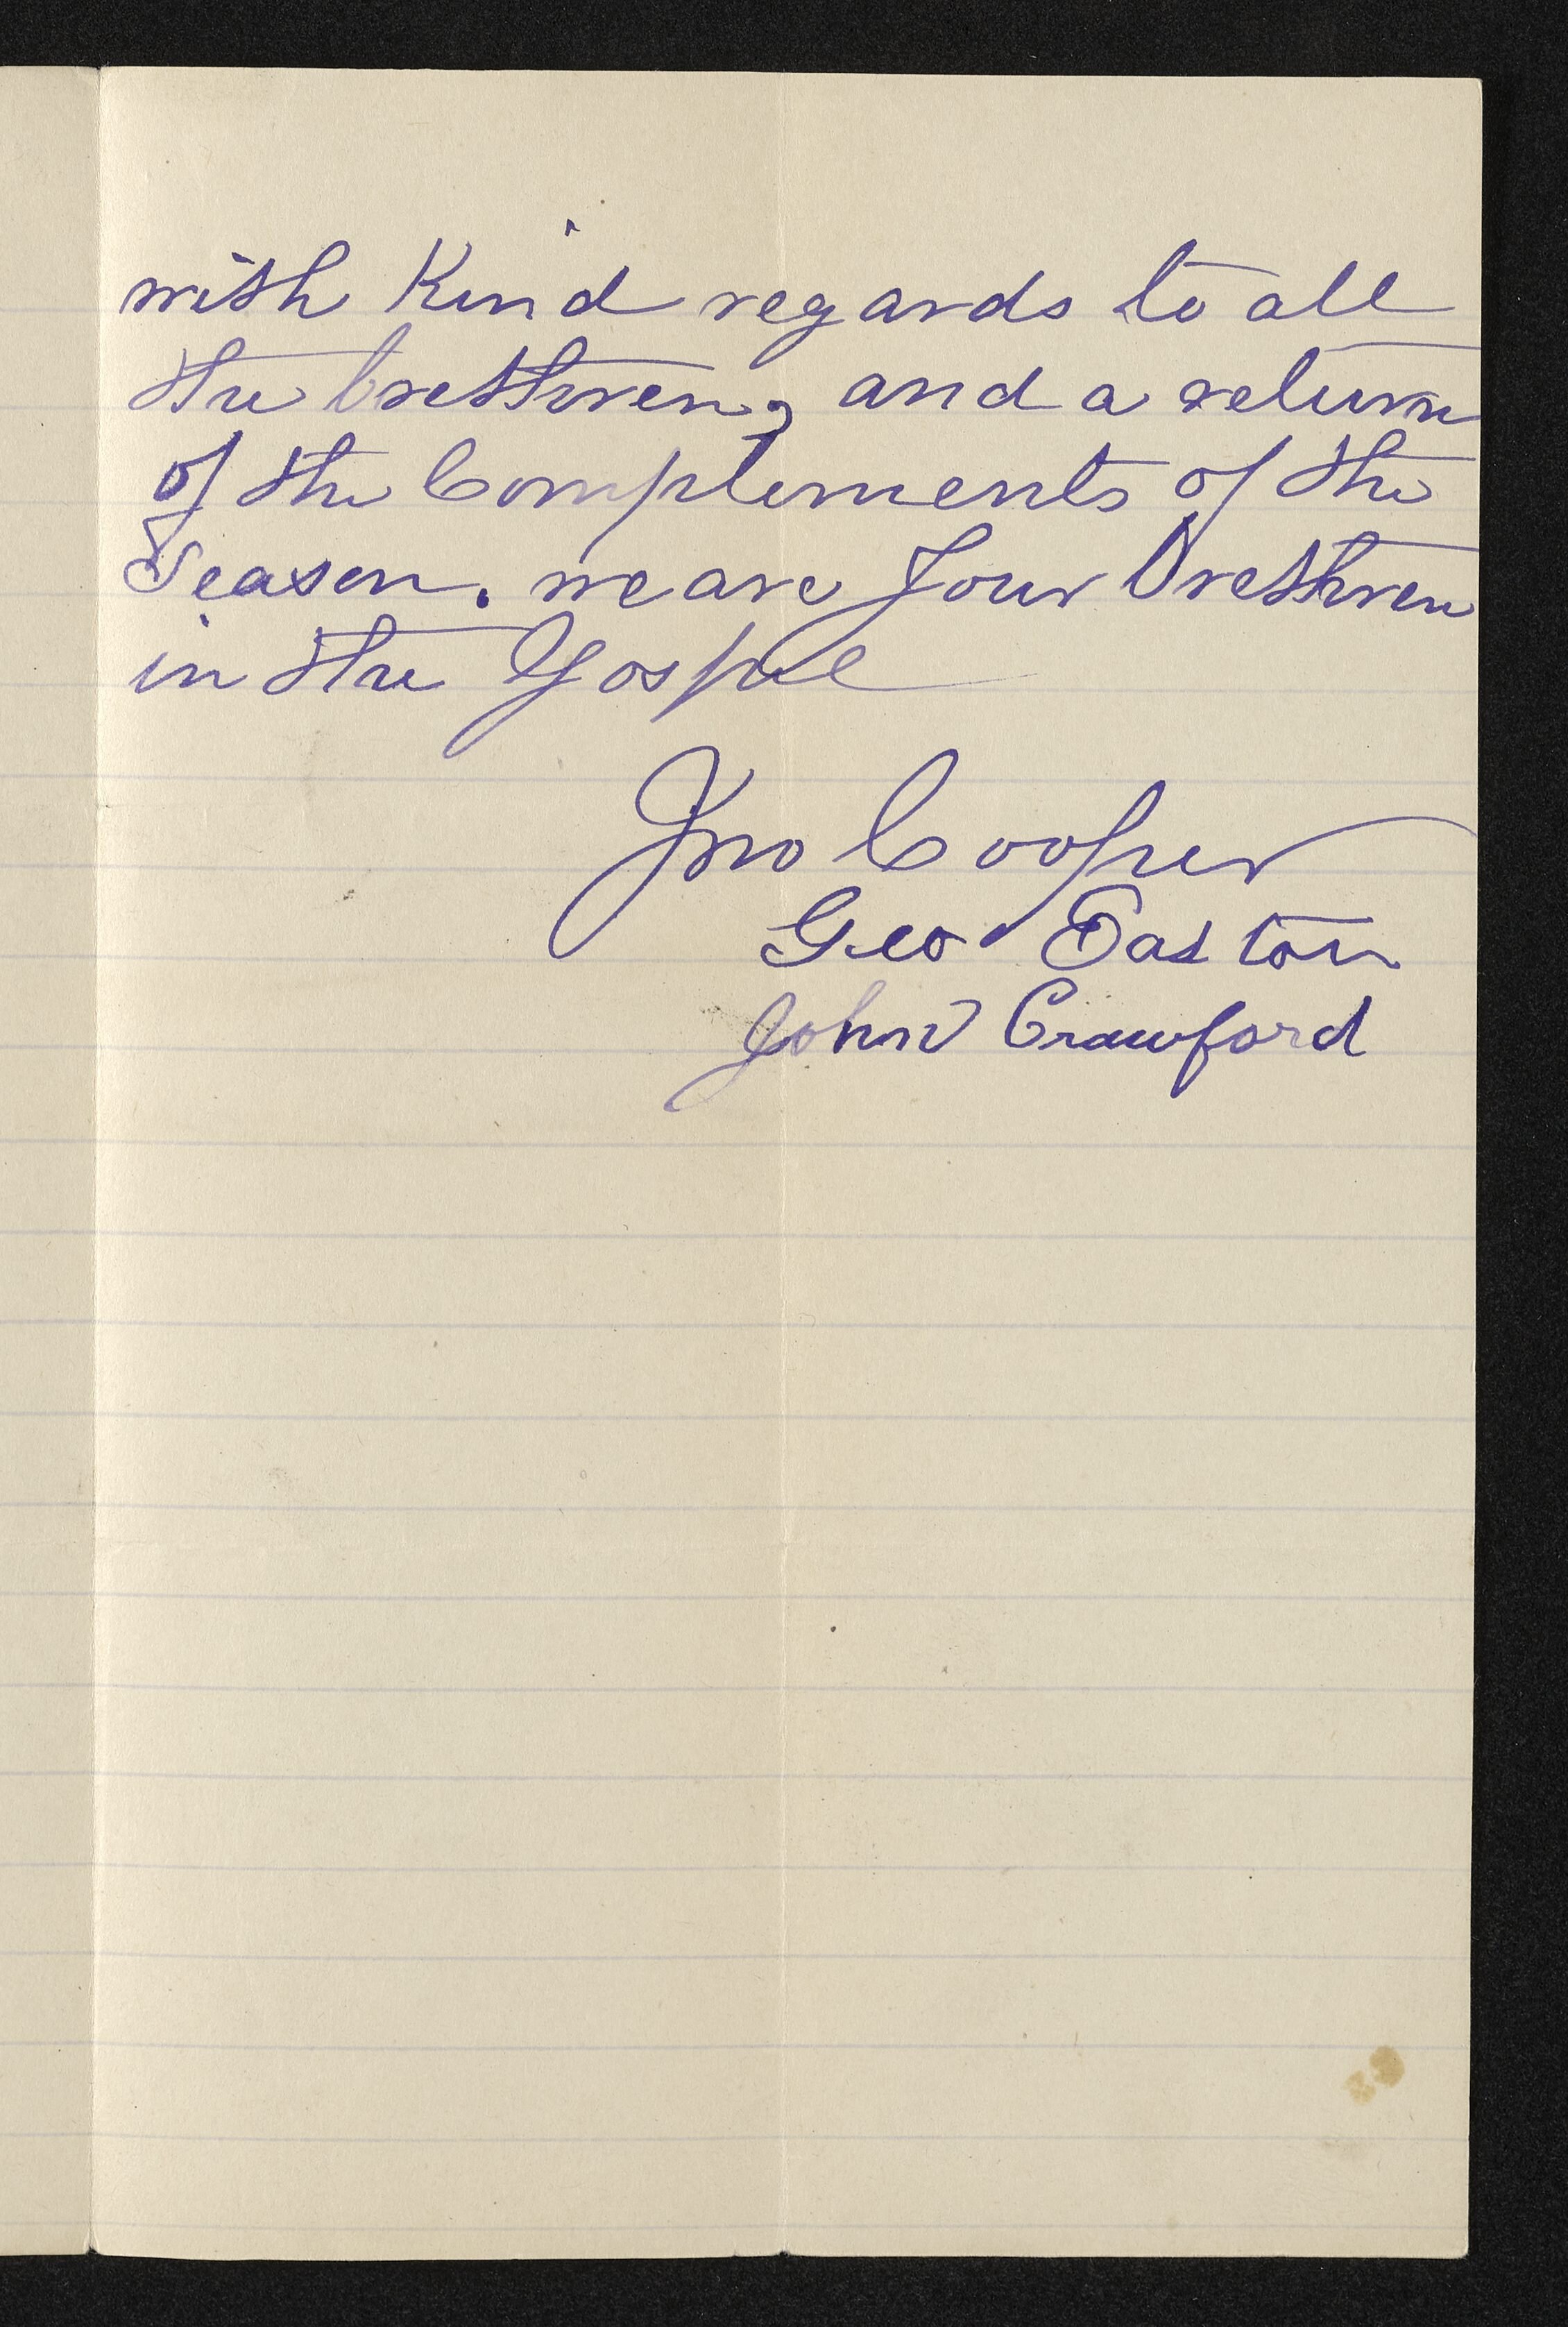 with Kind regards to all
the brethren, and a return
of the Complements of the
Season. we are Your Brethren
in the Gospel
Jno Cooper
Geo Easton
John Crawford